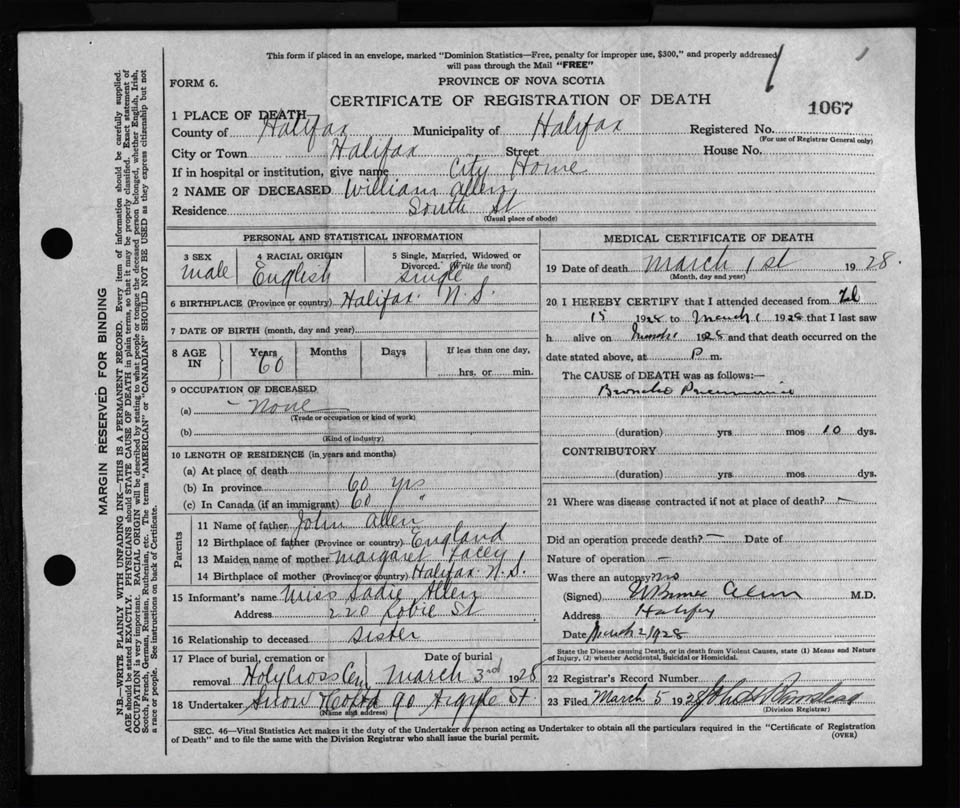 This form if placed in an envelope, marked "Dominion Statistics—Free, penalty for improper use, $300," and properly addressed
will pass through the Mail "FREE"
FORM 6.
PROVINCE OF NOVA SCOTIA
CERTIFICATE OF REGISTRATION OF DEATH
1067
1 PLACE OF DEATH
County of Halifax Municipality of Halifax Registered No.
(For use of Registrar General only)
City or Town Halifax Street House No.
If in hospital or institution, give name City Home
2 NAME OF DECEASED William Allen
Residence South St
(Usual place of abode)
PERSONAL AND STATISTICAL INFORMATION
3 SEX male
4 RACIAL ORIGIN English
5 Single, Married, Widowed or Divorced. (Write the word) Single
6 BIRTHPLACE (Province or country) Halifax N.S.
7 DATE OF BIRTH (month, day and year)
8 AGE IN Years 60 Months Days If less than one day, hrs. or min.
9 OCCUPATION OF DECEASED
(a) - None
(Trade or occupation or kind of work)
(b)
(Kind of industry)
10 LENGTH OF RESIDENCE (in years and months)
(a) At place of death
(b) In province 60 yrs
(c) In Canada (if an immigrant) 60 "
Parents
11 Name of father John Allen
12 Birthplace of father (Province or country) England
13 Maiden name of mother Margaret Lacey
14 Birthplace of mother (Province or country) Halifax N.S.
15 Informant's name Miss Sadie Allen
Address 220 Robie St
16 Relationship to deceased Sister
17 Place of burial, cremation or removal Holy Cross Cem Date of burial March 3rd 1928
18 Undertaker Snow & Co Ltd 90 Argyle St
(Name and address)
MEDICAL CERTIFICATE OF DEATH
19 Date of death March 1st 1928.
(Month, day and year)
20 I HEREBY CERTIFY that I attended deceased from Feb
15 1928 to March 1 1928 that I last saw
h alive on March 1 1928 and that death occurred on the
date stated above, at P m.
The CAUSE OF DEATH was as follows:—
Broncho Pneumonia
(duration) yrs mos 10 dys.
CONTRIBUTORY
(duration) yrs mos dys.
21 Where was disease contracted if not at place of death? —
Did an operation precede death? — Date of
Nature of operation —
Was there an autopsy? no
(Signed) M.D.
Address Halifax
Date March 2/1928
State the Disease causing Death, or in death from Violent Causes, state (1) Means and Nature
of Injury, (2) whether Accidental, Suicidal or Homicidal.
22 Registrar's Record Number
23 Filed March 5 1928
(Division Registrar)
SEC. 46—Vital Statistics Act makes it the duty of the Undertaker or person acting as Undertaker to obtain all the particulars required in the "Certificate of Registration
of Death" and to file the same with the Division Registrar who shall issue the burial permit.
(OVER)
MARGIN RESERVED FOR BINDING
N.B.—WRITE PLAINLY WITH UNFADING INK—THIS IS A PERMANENT RECORD. Every item of information should be carefully supplied.
AGE should be stated EXACTLY. PHYSICIANS should STATE CAUSE OF DEATH in plain terms, so that it may be properly classified. Exact statement of
OCCUPATION is very important. RACIAL ORIGIN will be described by stating to what people or tongue the deceased person belonged, whether English, Irish,
Scotch, French, German, Russian, Ruthenian, etc. The terms "AMERICAN" or "CANADIAN" SHOULD NOT BE USED as they express citizenship but not
a race or people. See instructions on back of Certificate.